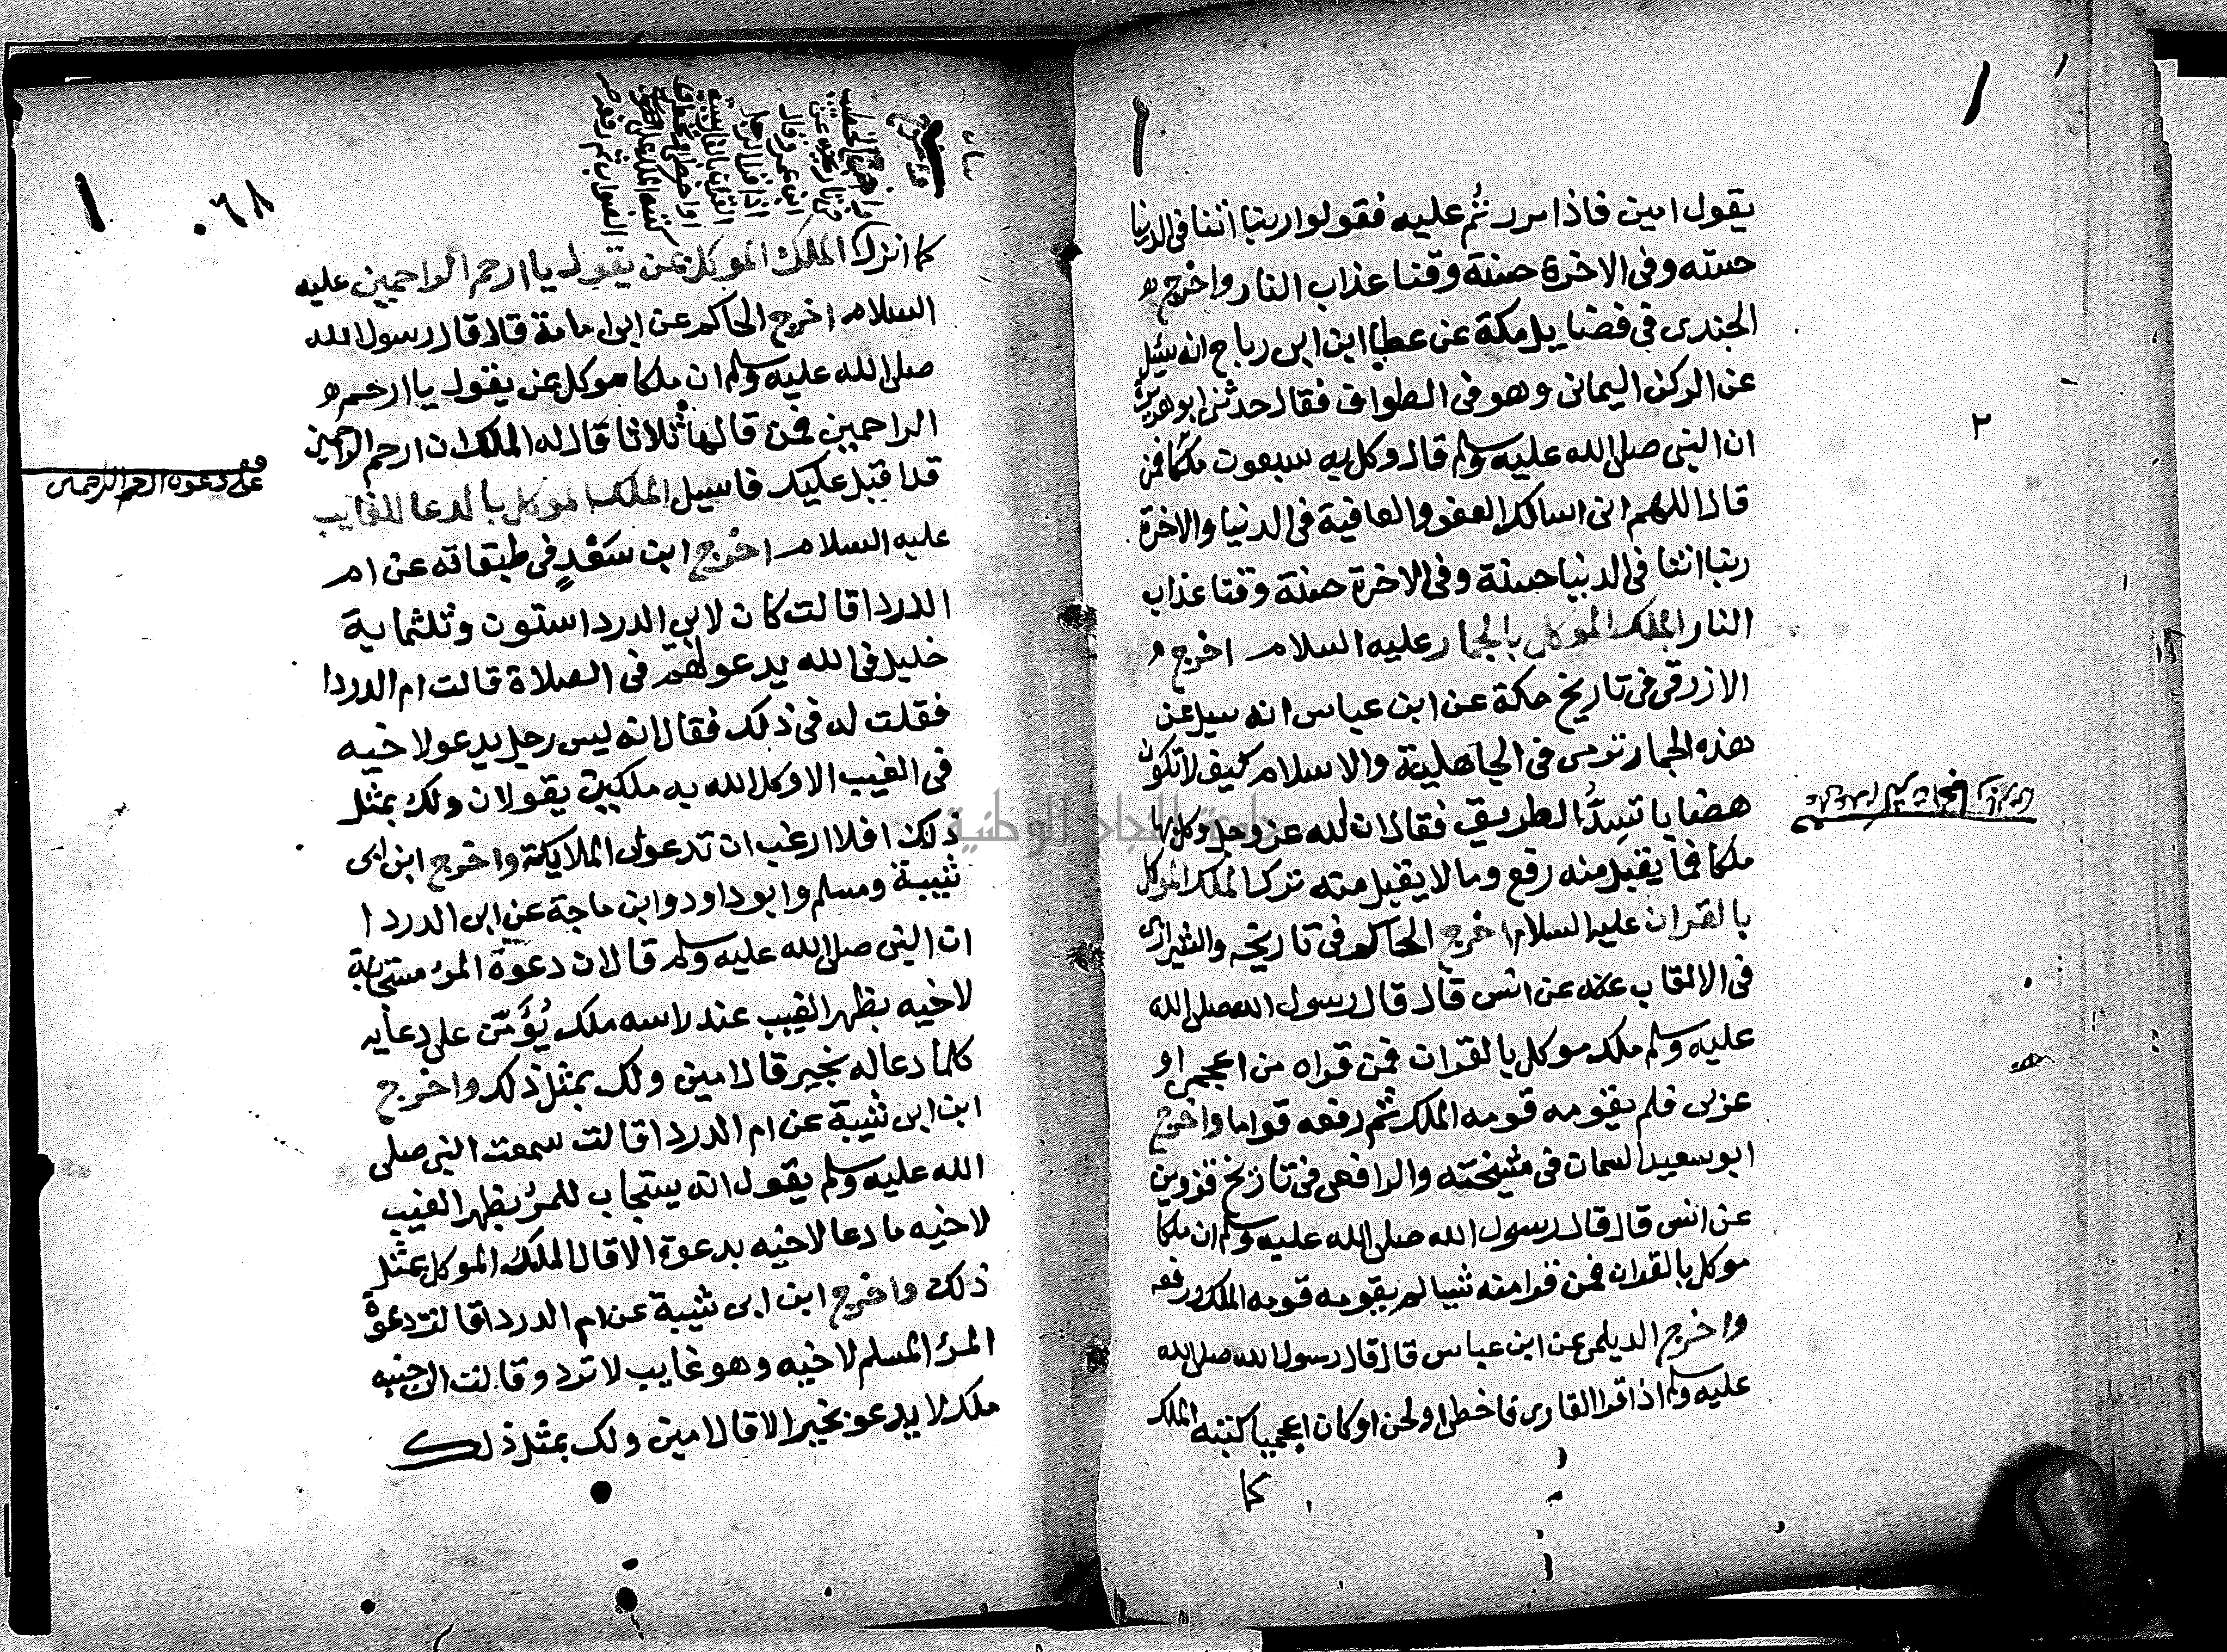 يقول امين فاذا مررتم عليه فقولوا ربنا اتنا فى الدنيا
حسنه وفى الاخرة حسنة وقنا عذاب النار واخرج
الجندى فى فضايل مكة عن عطا ابن ابى رباح انه سئيل
عن الركن اليمانى وهو فى الطواف فقال حدثنى ابو هريرة
ان النبى صلى الله عليه وسلم قال وكل به سبعون ملكا فمن
قال اللهم انى اسالك العفو والعافية فى الدنيا والاخرة
ربنا اتنا فى الدنيا حسنة وفى الاخرة حسنة وقنا عذاب
النار الملك الموكل بالجمار عليه السلام اخرج
الازرقى فى تاريخ مكة عن ابن عباس انه سيل عن
هذه الجمار ترمى فى الجاهلية والاسلام كيف لا تكون
هضابا تسدُّ الطريق فقال ان الله عز وجل وكل بها
ملكا فما يقبل منه رفع وما لا يقبل منه ترك الملك الموكل
بالقران عليه السلام اخرج الحاكم فى تاريخه والشيرازى
فى الالقاب عنه عن انس قال قال رسول الله صلى الله
عليه وسلم ملك موكل بالقران فمن قراه من اعجمى او
عربى فلم يقومه قومه الملك ثم رفعه قواما واخرج
ابو سعيد السمان فى مشيخته والرافعى فى تاريخ قزوين
عن انس قال قال رسول الله صلى الله عليه وسلم ان ملكا
موكل بالقران فمن قرا منه شيا لم يقومه قومه الملك ورفعه
واخرج الديلمى عن ابن عباس قال قال رسول الله صلى الله
عليه وسلم اذا قرا القارى فاخطى او لحن او كان اعجميا كتبه الملك
كما
٢
٠٦٨
كما انزل الملك الموكل بمن يقول يا ارحم الراحمين عليه
السلام اخرج الحاكم عن ابى امامة قال قال رسول الله
صلى الله عليه وسلم ان ملكا موكل بمن يقول يا ارحم
الراحمين فمن قالها ثلاثا قال له الملك ان ارحم الراحمين
قد اقبل عليك فاسيل الملك الموكل بالدعا للغايب
عليه السلام اخرج ابن سَعْدٍ فى طبقاته عن ام
الدردا قالت كان لابى الدردا ستون وثلثماية
خليل فى الله يدعو لهم فى الصلاة قالت ام الدردا
فقلت له فى ذلك فقال انه ليس رجل يدعو لاخيه
فى الغيب الا وكل الله به ملكين يقولان ولك بمثل
ذلك افلا ارغب ان تدعو لى الملايكة واخرج ابن ابى
شيبة ومسلم وابو داود وابن ماجة عن ابى الدردا
ان النبى صلى الله عليه وسلم قال ان دعوة المرء مستجابة
لاخيه بظهر الغيب عند راسه ملك يُؤَمّن على دعايه
كلما دعا له بخير قال امين ولك بمثل ذلك واخرج
ابن ابى شيبة عن ام الدردا قالت سمعت النبى صلى
الله عليه وسلم يقول انه يستجاب للمرء بظهر الغيب
لاخيه ما دعا لاخيه بدعوة الا قال الملك الموكل بمثل
ذلك واخرج ابن ابى شيبة عن ام الدردا قالت دعوة
المرء المسلم لاخيه وهو غايب لا ترد وقالت الى جنبه
ملك لا يدعو بخير الا قال امين ولك بمثل ذلك
دارة الملك الوطنية